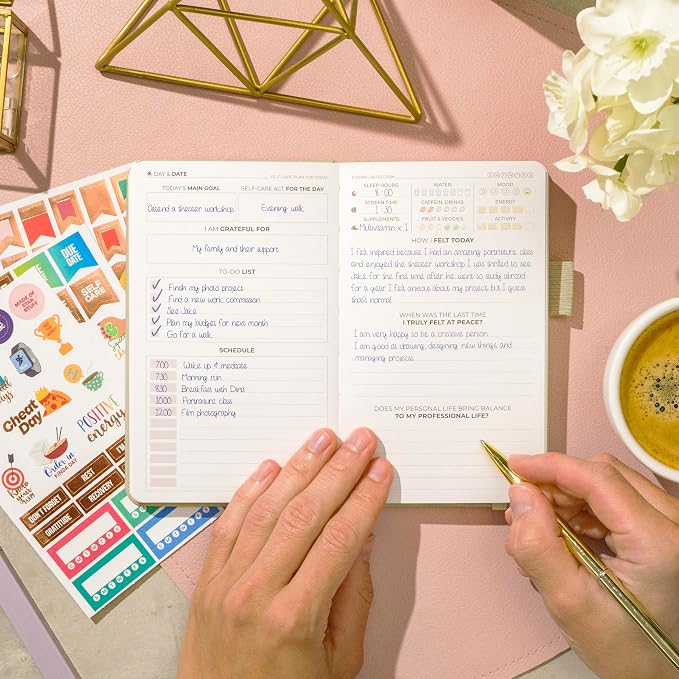 DAY & DATE
SELF-CARE PLAN FOR TODAY
TODAY'S MAIN GOAL
SELF-CARE ACT FOR THE DAY
Attend a theater workshop
Evening walk
I AM GRATEFUL FOR
My family and their support
TO-DO LIST
Finish my photo project
Find a new work commission
See Jake
Plan my budget for next month
Go for a walk
SCHEDULE
7:00 Wake up & meditate
7:30 Morning run
8:30 Breakfast with Dina
10:00 Portraiture class
12:00 Film photography
EVENING REFLECTION
SLEEP HOURS
8:00
SCREEN TIME
1:30
SUPPLEMENTS
Multivitamin x 1
WATER
CAFFEIN. DRINKS
FRUIT & VEGGIES
MOOD
ENERGY
ACTIVITY
HOW I FELT TODAY
I felt inspired because I had an amazing portraiture class
and enjoyed the theater workshop. I was thrilled to see
Jake for the first time after he went to study abroad
for a year. I felt anxious about my project, but I guess
that's normal.
WHEN WAS THE LAST TIME
I TRULY FELT AT PEACE?
I am very happy to be a creative person.
I am good at drawing, designing new things, and
managing projects.
DOES MY PERSONAL LIFE BRING BALANCE
TO MY PROFESSIONAL LIFE?
DUE
DATE
SELF
CARE
MADE OF
STAR
STUFF
Cheat
Day
POSITIVE
energy
Order in
KINDA DAY
KEEP
YOUR
REST
DON'T FORGET
RECOVERY
GRATITUDE
S M T W T F S
S M T W T F S
S M T W T F S